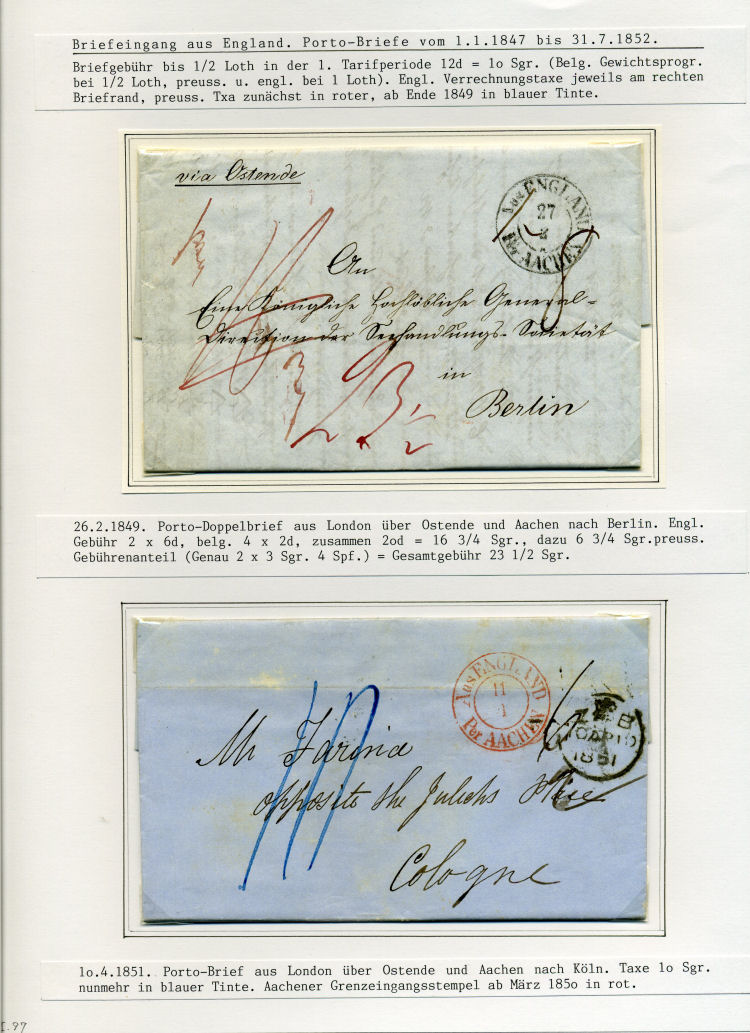 Briefeingang aus England. Porto-Briefe vom 1.1.1847 bis 31.7.1852.
Briefgebühr bis 1/2 Loth in der 1. Tarifperiode 12d = 1o Sgr. (Belg. Gewichtsprogr.
bei 1/2 Loth, preuss. u. engl. bei 1 Loth). Engl. Verrechnungstaxe jeweils am rechten
Briefrand, preuss. Txa zunächst in roter, ab Ende 1849 in blauer Tinte.
via Ostende
Aus ENGLAND
27
2
Per AACHEN
An
Eine Königliche Hochlöbliche General-
Direction der Seehandlungs-Societät
in
Berlin
23 1/2
26.2.1849. Porto-Doppelbrief aus London über Ostende und Aachen nach Berlin. Engl.
Gebühr 2 x 6d, belg. 4 x 2d, zusammen 2od = 16 3/4 Sgr., dazu 6 3/4 Sgr.preuss.
Gebührenanteil (Genau 2 x 3 Sgr. 4 Spf.) = Gesamtgebühr 23 1/2 Sgr.
Aus ENGLAND
11
4
Per AACHEN
10AP10
1851
Mr Farina
opposite the Julichs Place
Cologne
10
1o.4.1851. Porto-Brief aus London über Ostende und Aachen nach Köln. Taxe 1o Sgr.
nunmehr in blauer Tinte. Aachener Grenzeingangsstempel ab März 185o in rot.